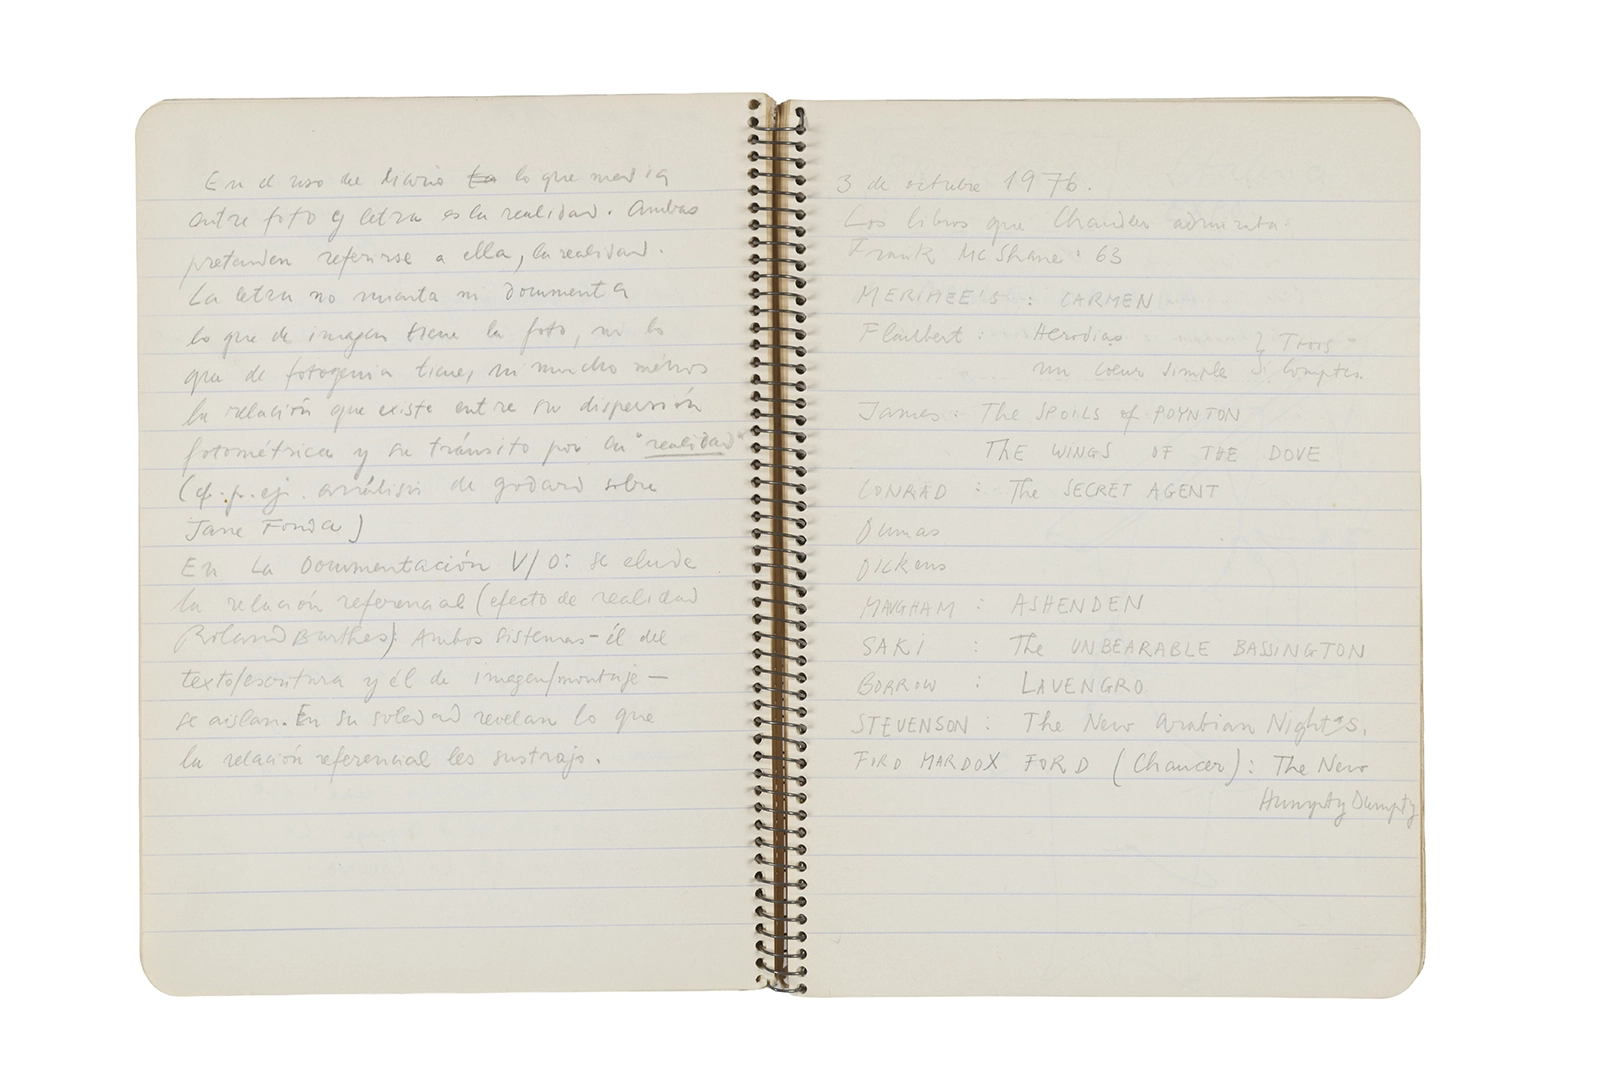 En el uso del diario la lo que media
entre foto y letra es la realidad. Ambas
pretenden referirse a ella, la realidad.
La letra no mienta ni documenta
lo que de imagen tiene la foto, ni lo
que de fotogenia tiene, ni mucho menos
la relación que existe entre su dispersión
fotométrica y su tránsito por la "realidad"
(cf. p. ej. análisis de godard sobre
Jane Fonda)
En La Documentación V/D: se elude
la relación referencial (efecto de realidad
Roland Barthes): Ambos sistemas - él del
texto/escritura y él de imagen/montaje —
se aislan. En su soledad revelan lo que
la relación referencial les sustrajo.
3 de octubre 1976.
Los libros que Chandler admiraba.
Frank McShane: 63
MERIMEE'S : CARMEN
Flaubert : Herodias } Trois
un coeur simple Comptes.
James : The SPOILS of POYNTON
The WINGS OF THE DOVE
CONRAD : The SECRET AGENT
Dumas
Dickens
MAUGHAM : ASHENDEN
SAKI : The UNBEARABLE BASSINGTON
BORROW : LAVENGRO
STEVENSON : The New Arabian Nights.
FORD MARDOX FORD (Chaucer) : The New
Humpty Dumpty